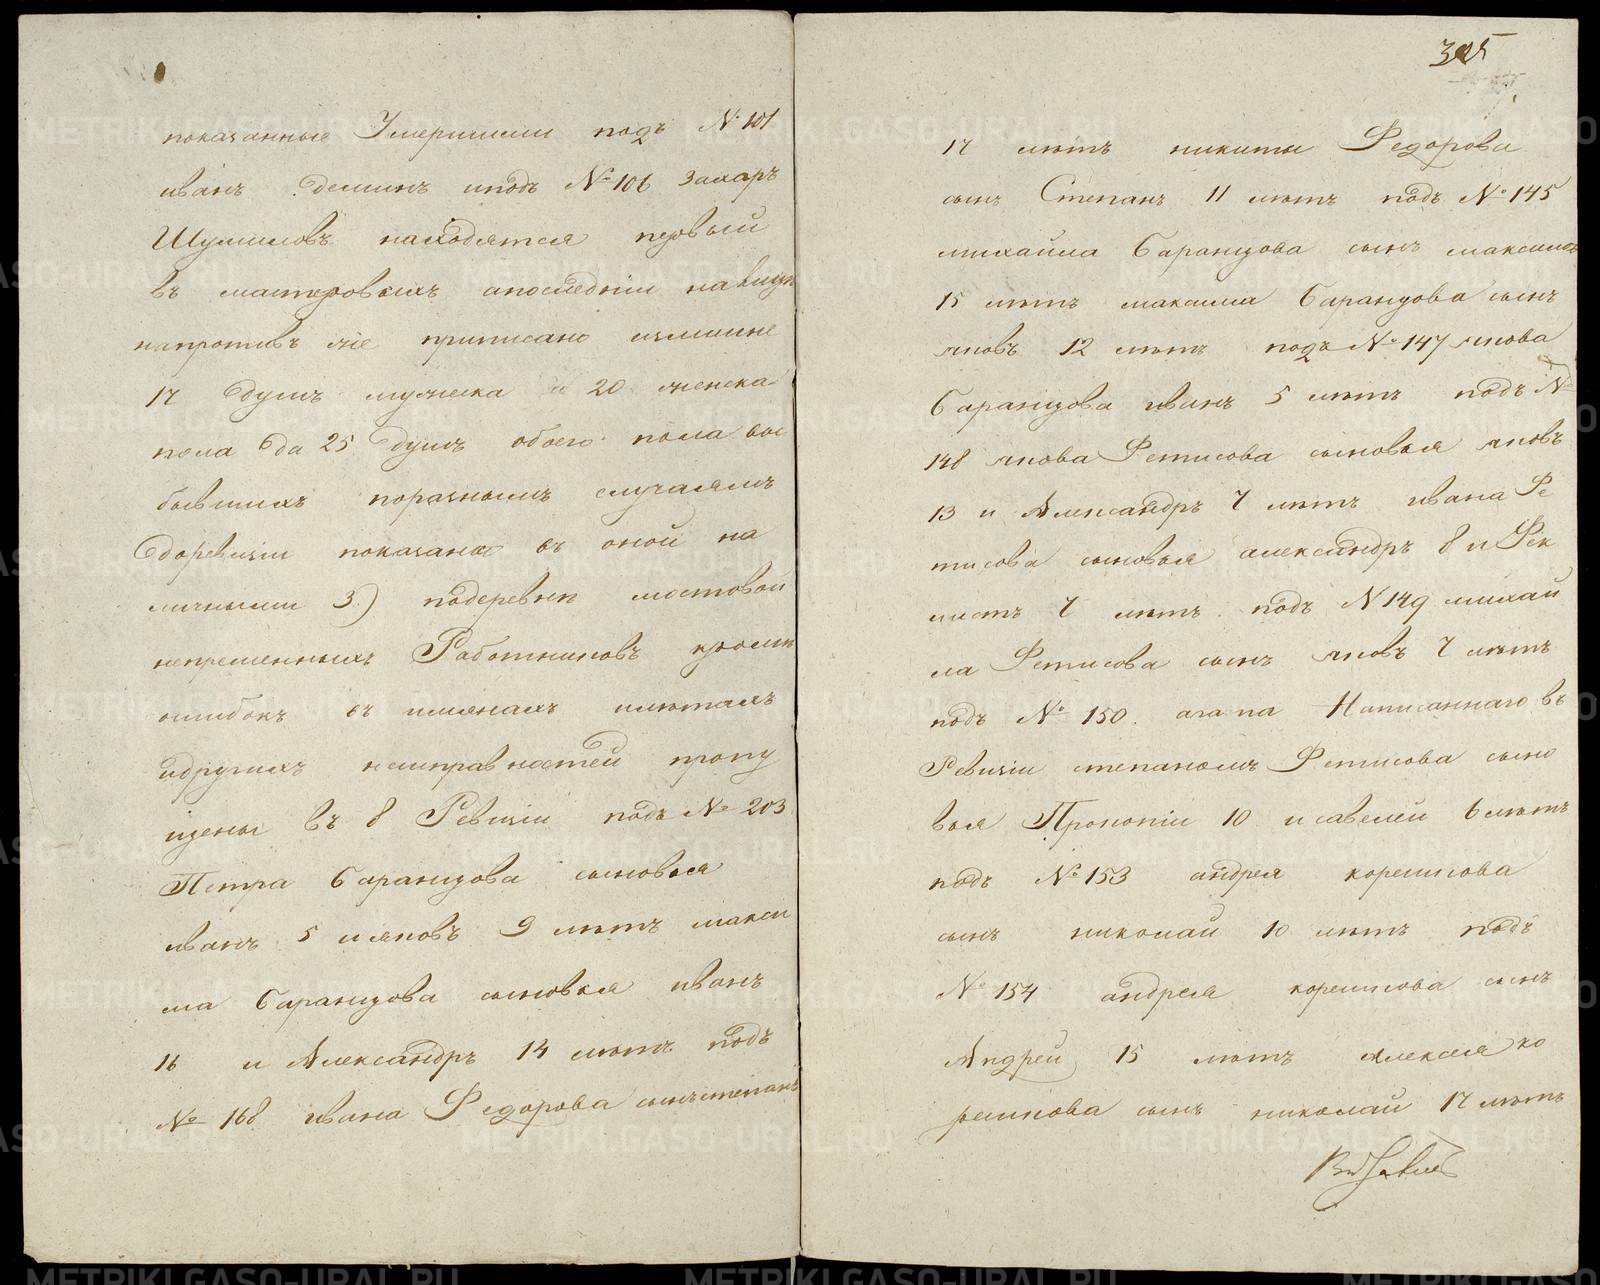 показанные Умершими подъ № 101
иванъ Деминъ иподъ № 106 Захаръ
Шумиловъ находятся первый
въ мастеровыхъ апоследнiи налицо
напротивъ же приписано излишне
17 Душъ мужеска и 20 женска
пола да 25 Душъ обоего пола вы
бывшихъ поразнымъ случаямъ
Доревизiи показано въ оной на
личными 3) подеревне мостовой
непременныхъ Работниковъ кроме
ошибокъ въ имянахъ илетахъ
идругихъ неисправностей пропу
щены въ 8 Ревизiи подъ № 203
Петра Баранцова сыновья
иванъ 5 ияковъ 9 летъ макси
ма Баранцова сыновья иванъ
16 и Александръ 14 летъ подъ
№ 168 ивана Федорова сынъстепанъ
325
17 летъ никиты Федорова
сынъ Степанъ 11 летъ подъ № 145
михайла Баранцова сынъ максимъ
15 летъ максима Баранцова сынъ
яковъ 12 летъ подъ № 147 якова
Баранцова иванъ 5 летъ подъ №
148 якова Фетисова сыновья яковъ
13 и Александръ 7 летъ ивана Фе
тисова сыновья александръ 8 и Фек
листъ 7 летъ подъ N 149 михай
ла Фетисова сынъ яковъ 7 летъ
подъ № 150. агапа Написаннаго въ
Ревизiи степаномъ Фетисова сыно
вья Прокопiи 10 исавелей 6 летъ
подъ № 153 андрея кореписова
сынъ николай 10 летъ подъ
№ 154 андрея кореписова сынъ
Андрей 15 летъ алексея ко
репикова сынъ николай 17 летъ